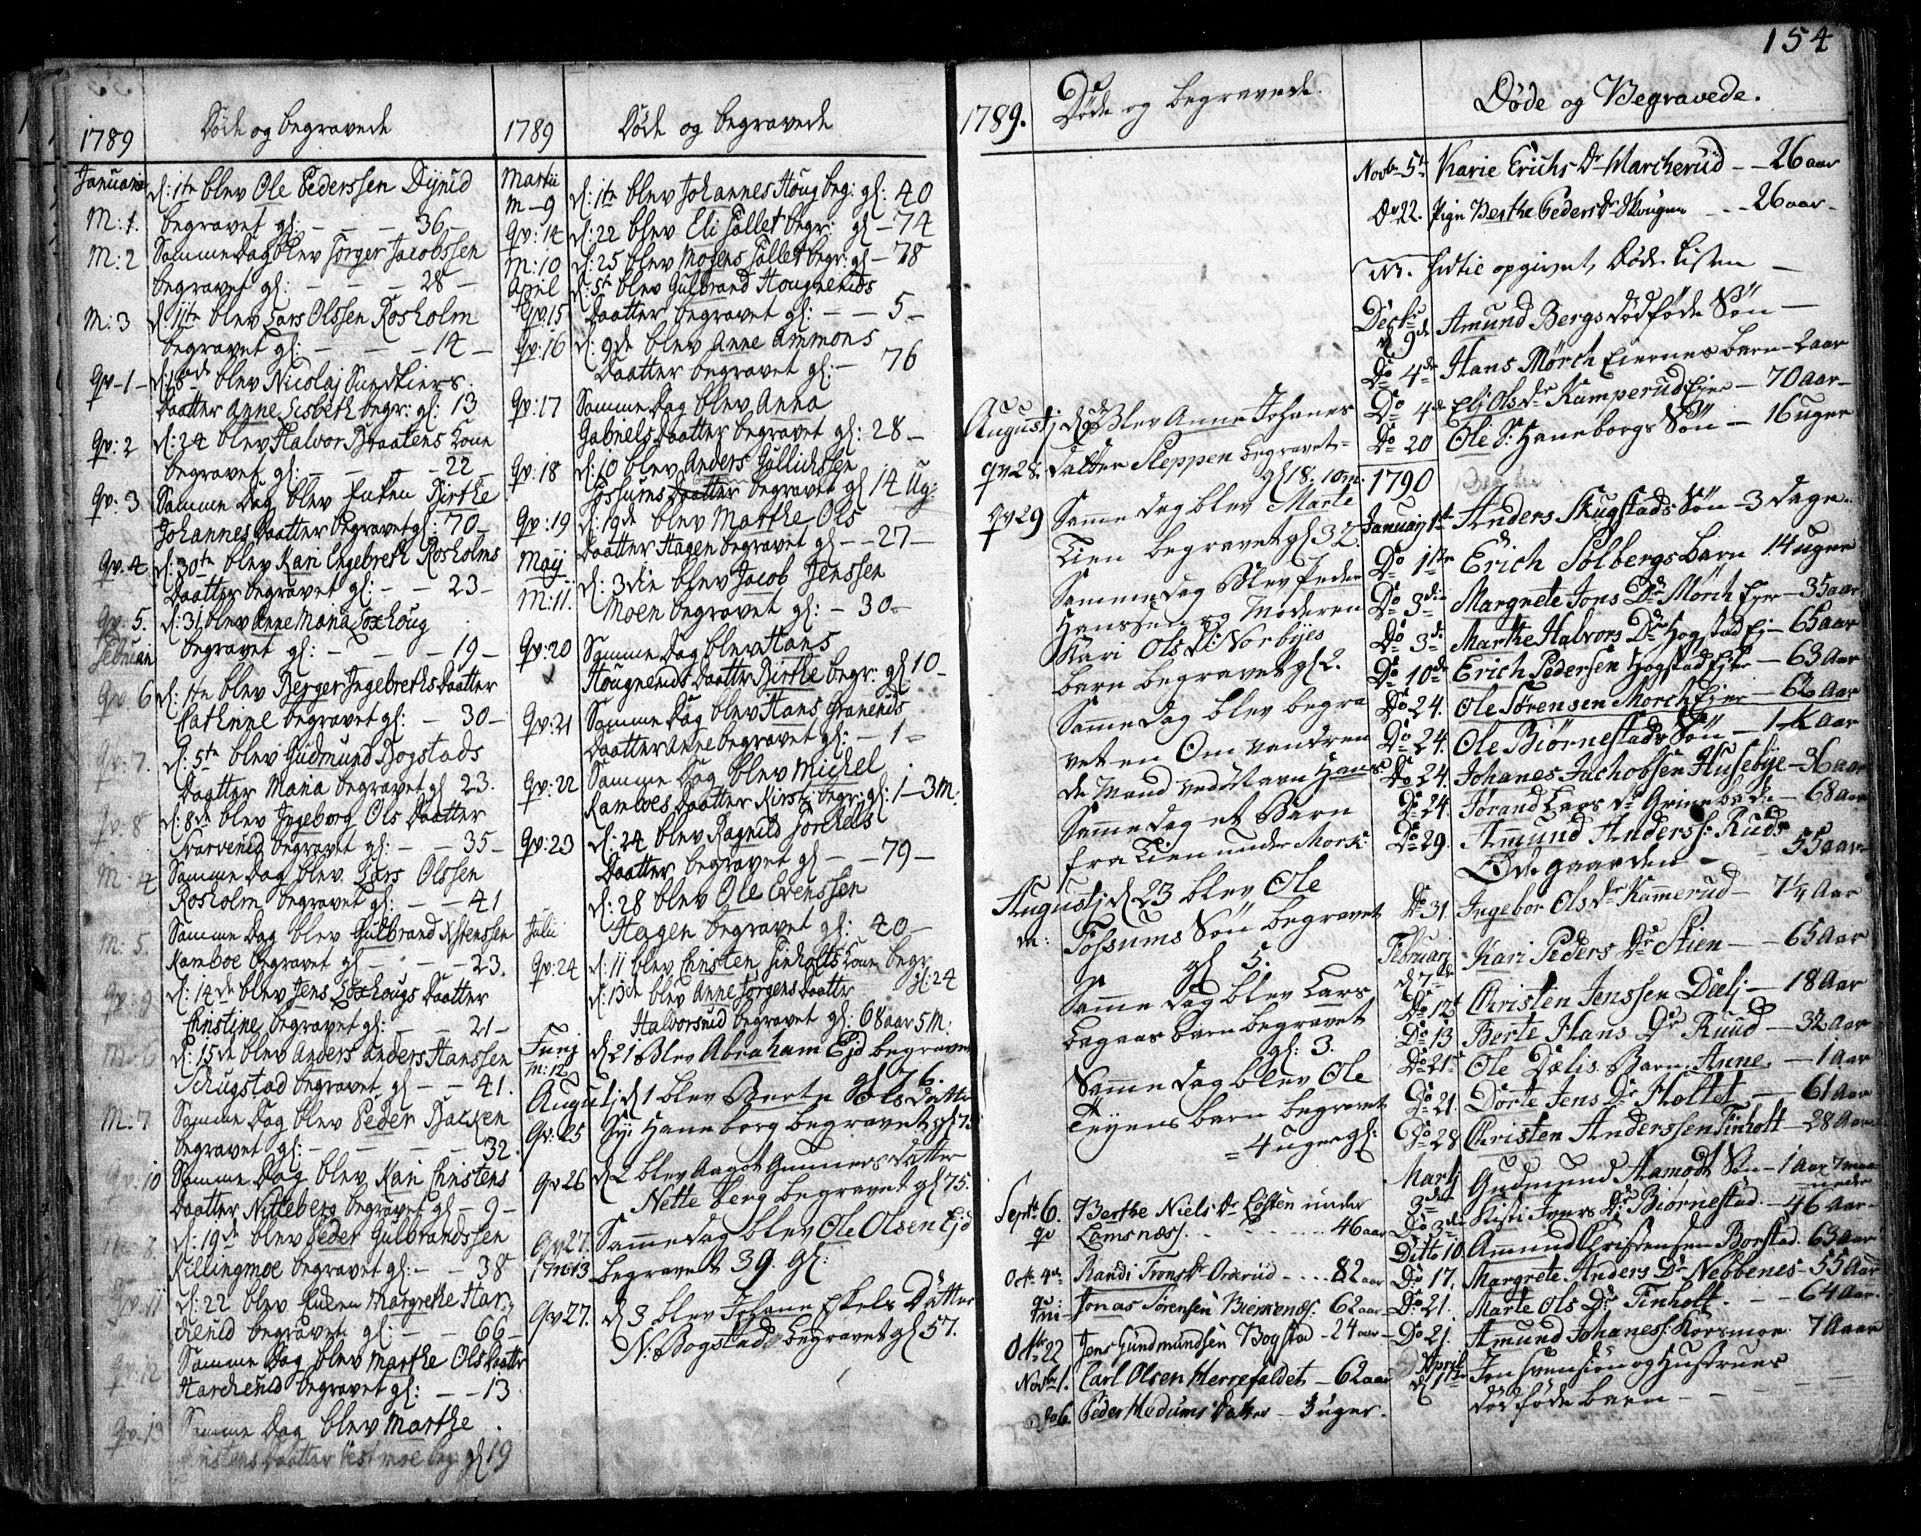 154
1789
Døde og begravede
Januarii
d: 1te blev Ole Pederssen Dynid
M: 1. begravet gl: - - - 36 -
M: 2 Samme Dag blev Jørger Jacobssen
begravet gl: - - - 28 -
M: 3 d: 11te blev Lars Olssen Rosholm
begravet gl: - - - 14 -
Qv - 1 - d: 18de blev Nicolaj Sundkiers
Daatter Anne Lisbeth begr: gl: 13
Qv: 2 d: 24 blev Halvor Braatens Kone
begravet gl: - - - 22 -
Qv: 3 Samme Dag blev Enken Birthe
Johannes Daatter begravet gl: 70 -
Qv: 4 d: 30te blev Kari Engebreth Rosholms
Daatter begravet gl: - - 23 -
Qv: 5. d: 31 blev Anne Maria Loxhoug
begravet gl: - - - 19 -
Februari
Qv: 6 d: 1te blev Berger Ingebreths Daatter
begravet gl: - 30 -
Qv: 7. d: 5te blev Gudmund Bogstads
Daatter Maria begravet gl 23.
Qv: 8 d: 8de blev Ingeborg Ols Daatter
begravet gl: - - 35 -
M: 4 Samme Dag blev Lars Olssen
Rosholm begravet gl: - - 41
M: 5. Samme Dag blev Gulbrand Østenssen
Ramboe begravet gl - - - 23.
Qv: 9 d: 14de blev Jens Loxhougs Daatter
Christine begravet gl: - - 21 -
M: 6 d: 15de blev Anders Anders Hanssen
Schugstad begravet gl - - 41.
M: 7 Samme Dag blev Peder Backen
begravet gl: - - - 32.
Qv: 10 Samme Dag blev Kari Christens
Daatter Nitteberg begravet gl - 9 -
M: 8 d: 19de blev Peder Gulbrandssen
Killingmoe begravet gl: - - 38
Qv: 11 d: 22 blev Enken Margrethe Har-
cherud begravet gl: - - 66 -
Qv: 12 Samme Dag blev Marthe Ols Daatter
Harcherud begravet gl: - - 13
Qv: 13 Samme Dag blev Marthe
Christens Daatter Vestmoe beg: gl 19
1789
Døde og begravede
Martii
M - 9 d: 1te blev Johannes Houg beg: gl: 40
Qv: 14 d: 22 blev Eli Tollet begr: gl - 74
M: 10 d: 25 blev Mosens Tollet begr: gl - 78
April d: 5te blev Gulbrand Hougneruds
Qv: 15 Daatter begravet gl: - - 5 -
Qv: 16 d: 9de blev Anne Ammons
Daatter begravet gl: - 76
Qv: 17 Samme Dag blev Anna
Gabriels Daatter begravet gl: 28 -
Qv: 18 d: 10 blev Anders Gullichssen
Fossums Daatter begravet gl 14 Ug:
Qv: 19 d: 19de blev Marthe Ols
Daatter Hagen begravet gl - - 27 -
Maij
M: 11. d: 3die blev Jacob Jenssen
Moen begravet gl: - 30 -
Qv: 20 Samme Dag blev Hans
Hougneruds Daatter Birthe begr: gl 10 -
Qv: 21 Samme Dag blev Hans Graneruds
Daatter Anne begravet gl: - 1 -
Qv: 22 Samme Dag blev Michel
Ramboes Daatter Kirsti begr: gl: 1 - 3 M:
Qv: 23 d: 24 blev Ragnild Torchels
Daatter begravet gl - - 79 -
d: 28 blev Ole Evenssen
Hagen begravet gl: 40 -
Julii
Qv: 24 d: 11 blev Christen Tinholts Kone begr
gl: 24
d: 13de blev Anne Jørgens Daatter
Halvorsrud begravet gl: 68 aar 5 M:
Junj d 21 Blev Abraham Ejd begravet
M: 12 gl 76.
Augustj d 1 blev Berte Ols Datter
Qv: 25 Sy: Haneborg begravet gl 73
Qv 26 d 2 blev Aagot Gunners Datter
Netteberg begravet gl 75.
Qv 27. Samme dag blev Ole Olsen Ejd
M: 13 begravet 39. gl:
Qv 27. d 3 blev Johane Eskels Datter
N: Bogstad begravet gl 57.
1789.
Døde og begravede.
Augustj d 9de Blev Anne Johanes
qv 28. Datter Sleppen begravet
gl 18. 10 m.
qv 29 Samme dag blev Marte
Lien begravet gl 32.
Samme dag Blev Peder
Hanssen og Moderen
Kari Ols dr: Norbyes
barn begravet gl 2.
Samme dag blev begra
vet en Om vandren
de Mand ved Navn Hans
Samme dag et Barn
fra Lien under Mork:
Augustj d 23 blev Ole
m: Fossums Søn begravet
gl 5.
Samme dag blev Lars
barn begravet
gl: 3.
Samme dag blev Ole
barn begravet
= 4 uger gl:
Septr 6. Berthe Niels Dr Løsten under
qv Lamsnæss. - - - 46 aar
Octr 4de Randi Trons Dr Oxerud - - - 82 aar
Jonas Sørensen 62 aar
Octr 22 Jens Gundmundsen Bogstad - 24 aar
Novbr 1. Carl Olsen Herrefaldet - 62 aar
Do 6. Peder Datter - 3 uger.
Døde og Begravede.
Novbr 5te Karie Erichs Dr Marcherud - - 26 aar
Do 22. Pige Berthe Peders Dr Skougen - - - 26 aar -
NB. hidtil opgivet, Døde Listen -
Decbr
d 9de Amund Bergs dødføde Søn -
Do 4de Hans Mørch Eiernes barn - 2 aar
Do 4de Elj Ols Dr Kamperud Ejer - 70 Aar -
Do 20 Ole Haneborgs Søn - 16 uger
1790
Januarj 1te Anders Skugstads Søn - 3 dage.
Do 1te Erich Solbergs barn 14 uger
Do 3de Margrete Jons Dr Mørch Ejer - 35 aar
Do 3de Marthe Halvors Dr Hogstad Ej - 65 aar
Do 10de Erich Pedersen Hogstad Ejer - 63 Aar
Do 24. Ole Sørensen Morch Ejer - 62 Aar
Do 24. Ole Biørnestads Søn - 1 1/2 aar
Do 24. Johanes Jachobsen Husebye - 36 aar
Do 24. Jørand Lars dr - 68 aar
Do 29. Amund Anderss: Ruds
Ødegaarden - - 55 aar
Do 31. Ingebor Ols dr Kamerud - 7 1/4 Aar
Februarj
d 7de Kari Peders Dr Stien - - 65 Aar
Do 12te Christen Jenssen Dælj - 18 Aar
Do 13 Berte Hans Dr Ruud - 32 Aar
Do 21de Ole Dælis Barn Anne. - 1 aar
Do 21. Dorte Jens Dr Holtet - 61 Aar
Do 28 Christen Anderssen Tinholt - 28 Aar
Martj
3de Gudmund Aamodt Søn - 1 Aar 7 maa
neder
Do 3de Kisti Ivers Dr Biørnestad. - 46 Aar
Ditto 10. Ammund Christensen Borstad. 63 aar
Do 17. Margrete Anders Dr Nebbenes - 55 Aar
Do 21. Marte Ols Dr Tinholt. - - 64 Aar.
Do 21. Amund Johaness: Korsmoe 7 Aaar
April
d 11te Jon Svension og Hustrues
dødføde barn - - - -